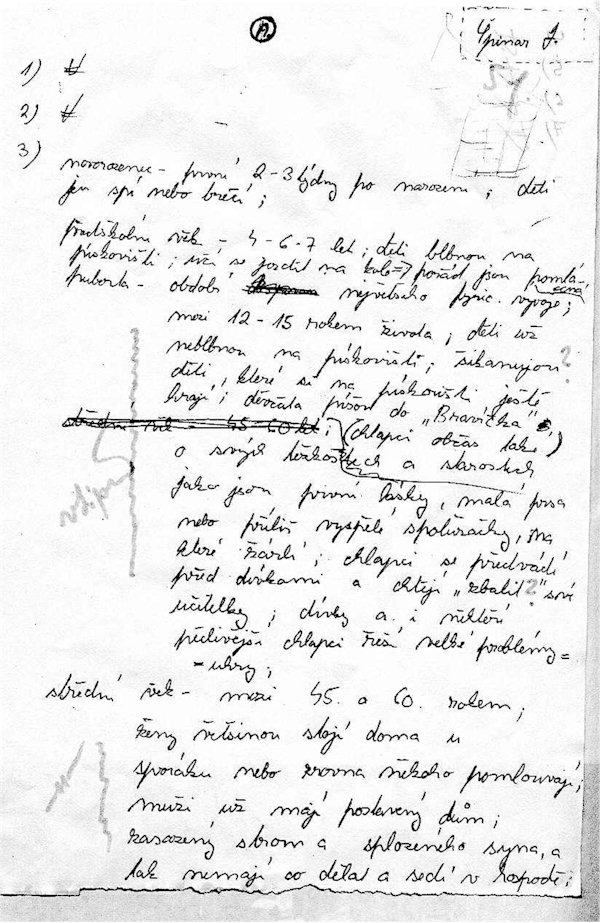 A
Špinar J.
1) //
2) //
3)
novorozenec - první 2-3 týdny po narození; děti
jen spí nebo brečí;
předškolní věk - 4-6-7 let; děti blbnou na
pískovišti; učí se jezdit na kole => pořád jsou pomlá-
cená
puberta - období největšího fyzic. vývoje;
mezi 12-15 rokem života; děti už
neblbnou na pískovišti; šikanujou ?
děti, které si na pískovišti ještě
hrají; děvčata píšou do „Bravíčka“
střední věk - 45-60 let; (chlapci občas také)
o svých těžkostech a starostech
jako jsou první lásky, malá prsa
nebo příliš vyspělé spolužačky, na
které žárlí; chlapci se předvádí
před dívkami a chtějí „zbalit“ ? své
učitelky; dívky a i někteří
pečlivější chlapci řeší velké problémy =
= uhry;
vtipné
střední věk - mezi 45. a 60. rokem;
ženy většinou stojí doma u
sporáku nebo zrovna někoho pomlouvají;
muži už mají postavený dům;
zasazený strom a splozeného syna, a
tak nemají co dělat a sedí v hospodě;